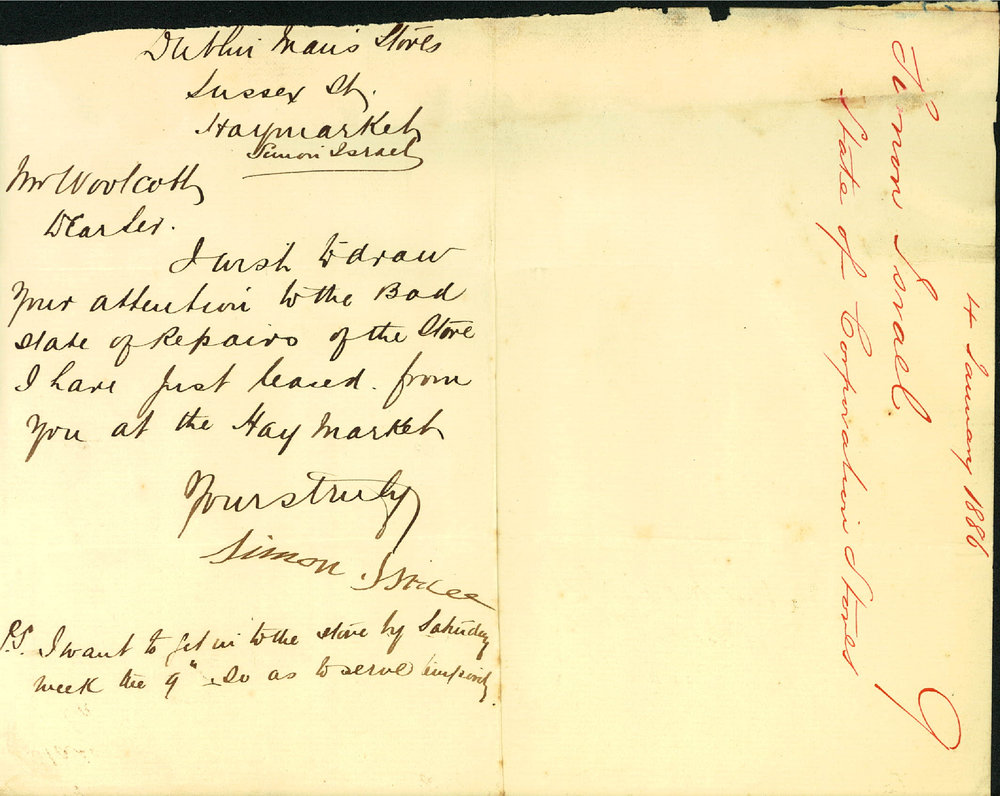 Dublin Man's Stores
Sussex St.
Haymarket
Simon Israel
Mr Woolcott
Dear Sir.
I wish to draw
Your attention to the Bad
state of Repairs of the Store
I have Just leased from
You at the Hay Market
Yours truly
Simon Israel
P.S. I want to get in to the store by Saturday
week the 9" so as to serve
Simon Israel.
State of Corporation Stores
4 January 1886
9